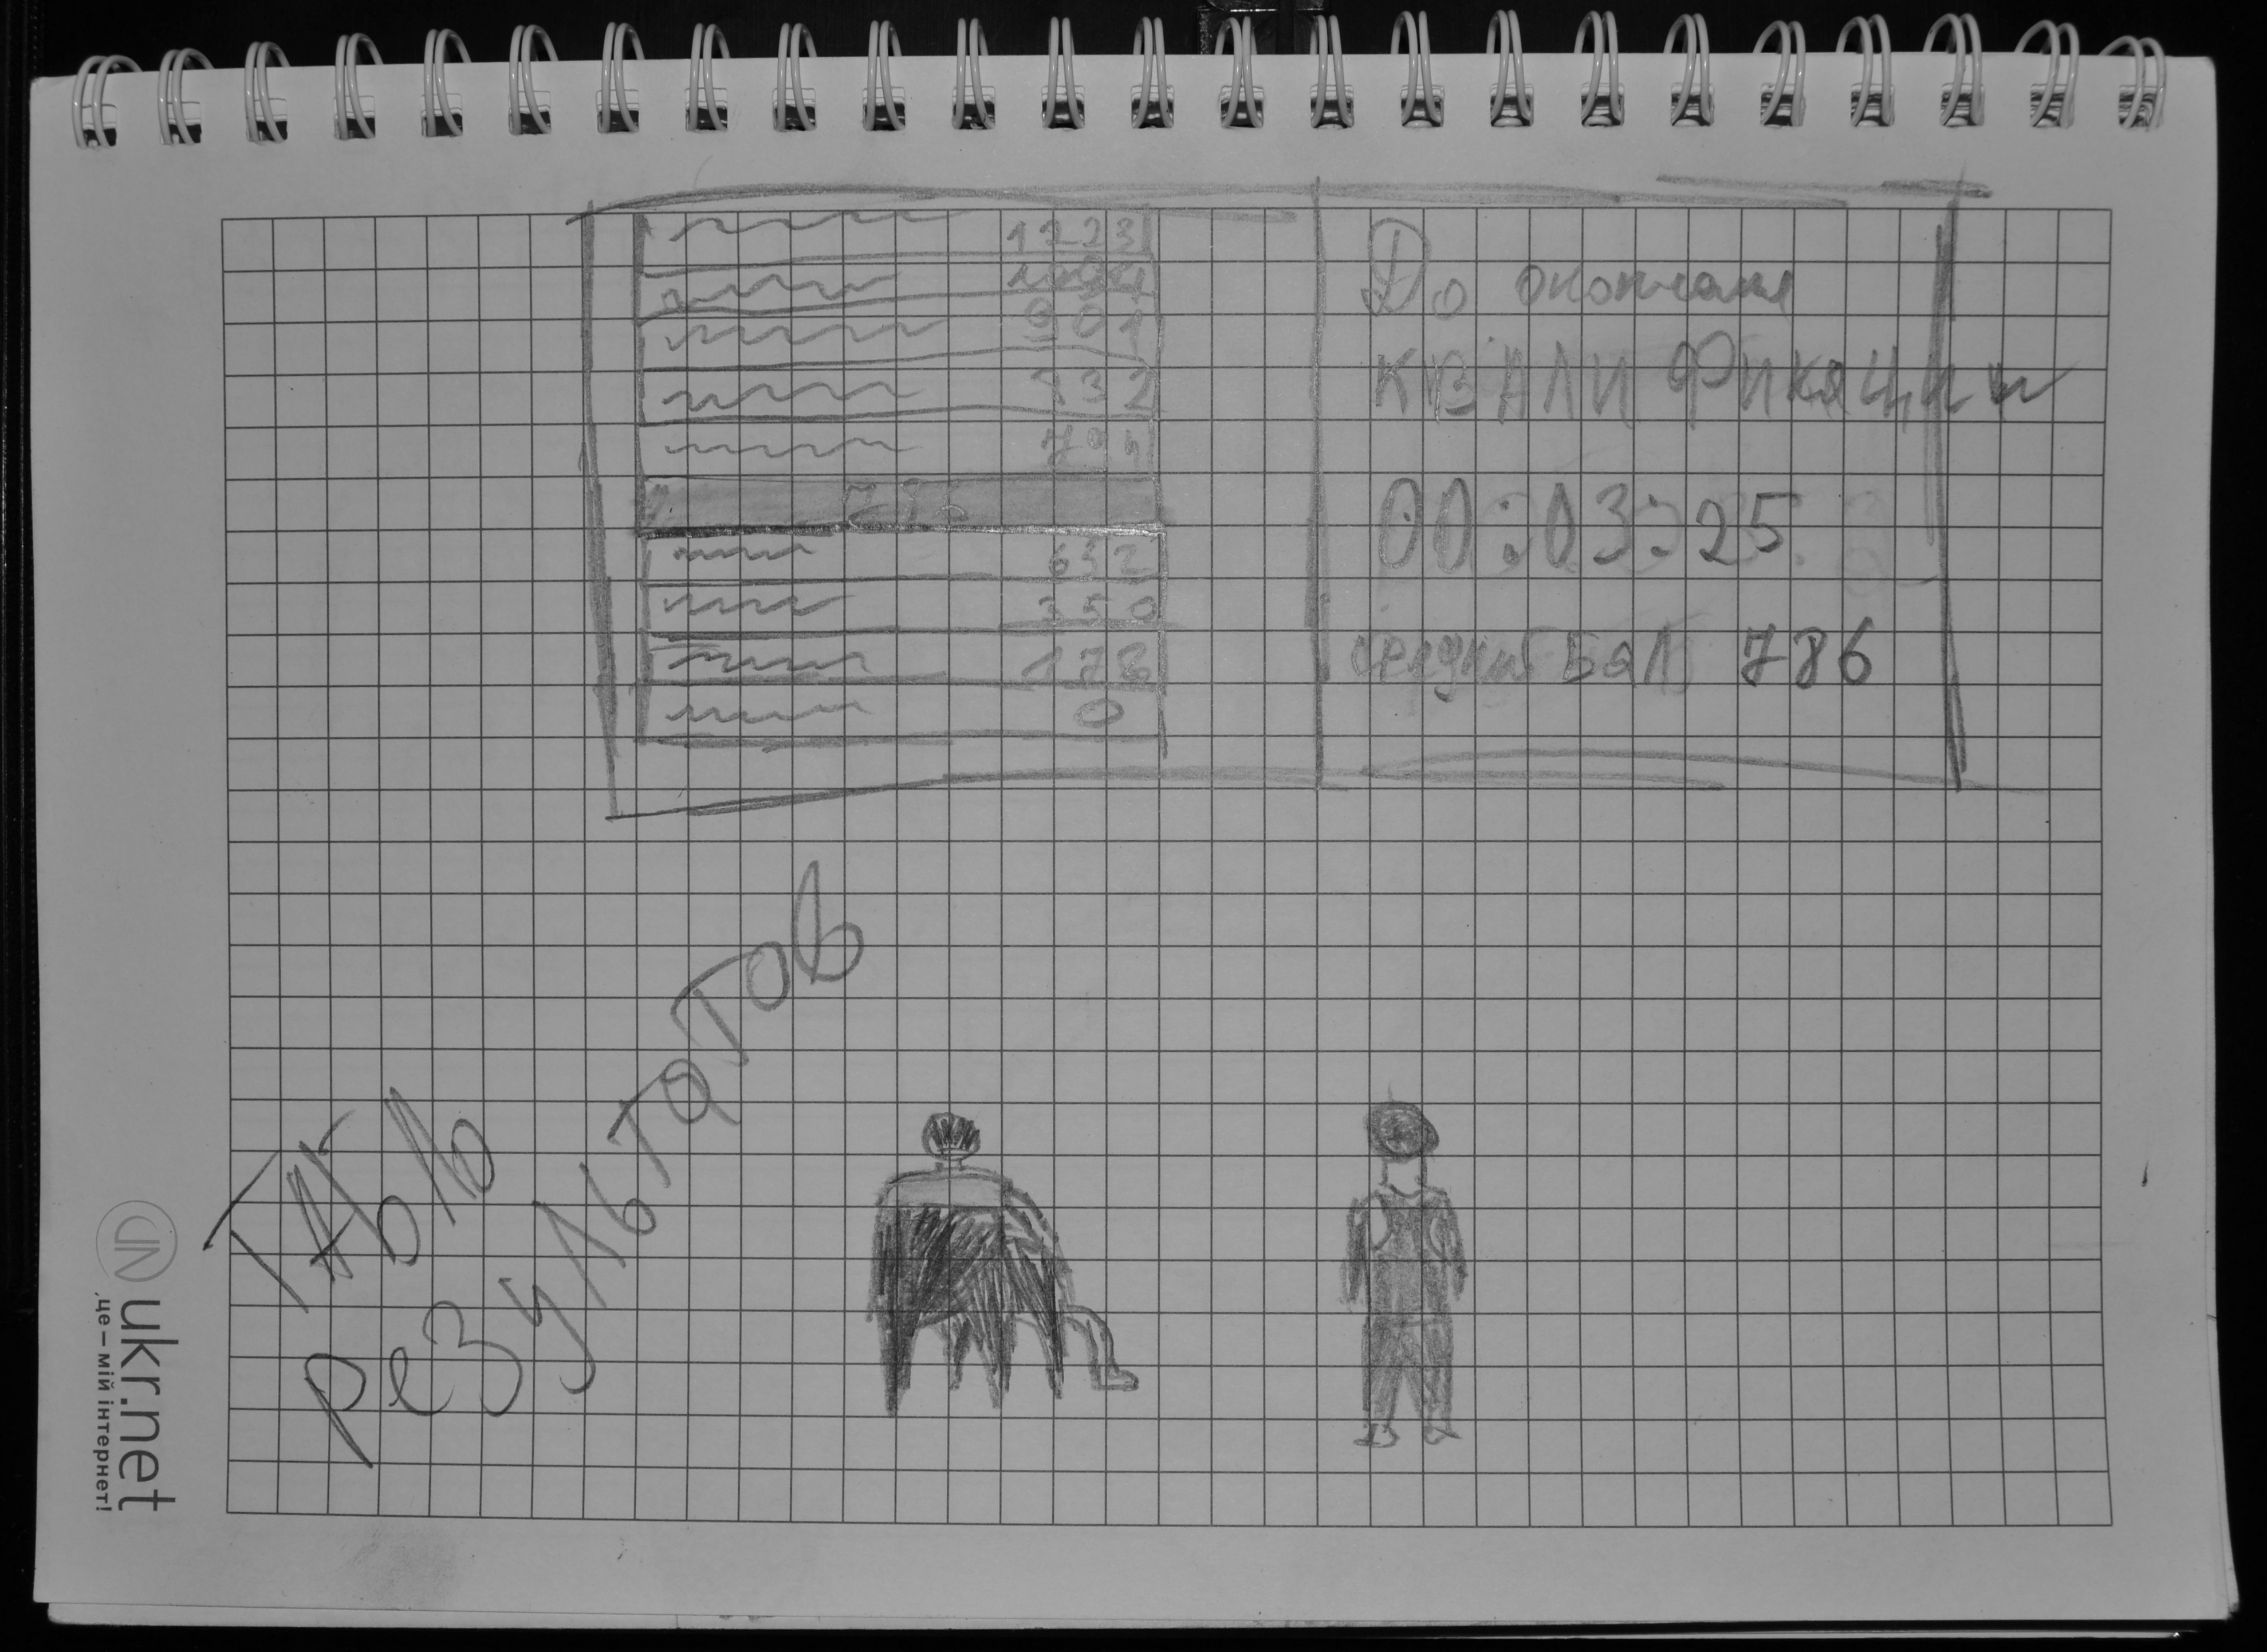 1223
901
632
350
178
0
До окончания
КВАЛИФИКАЦИИ
00:03:25
средний БАЛ 786
ТАБЛО
резульТаТов
ukr.net
це – мій інтернет!